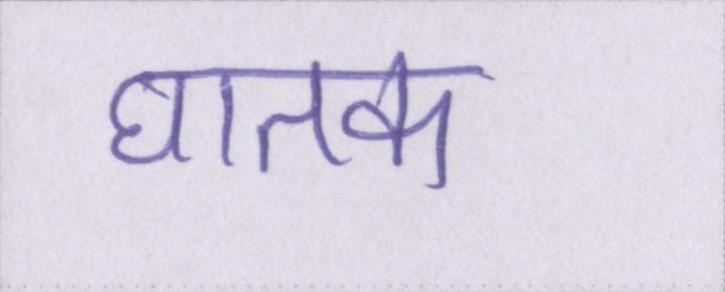 घातक